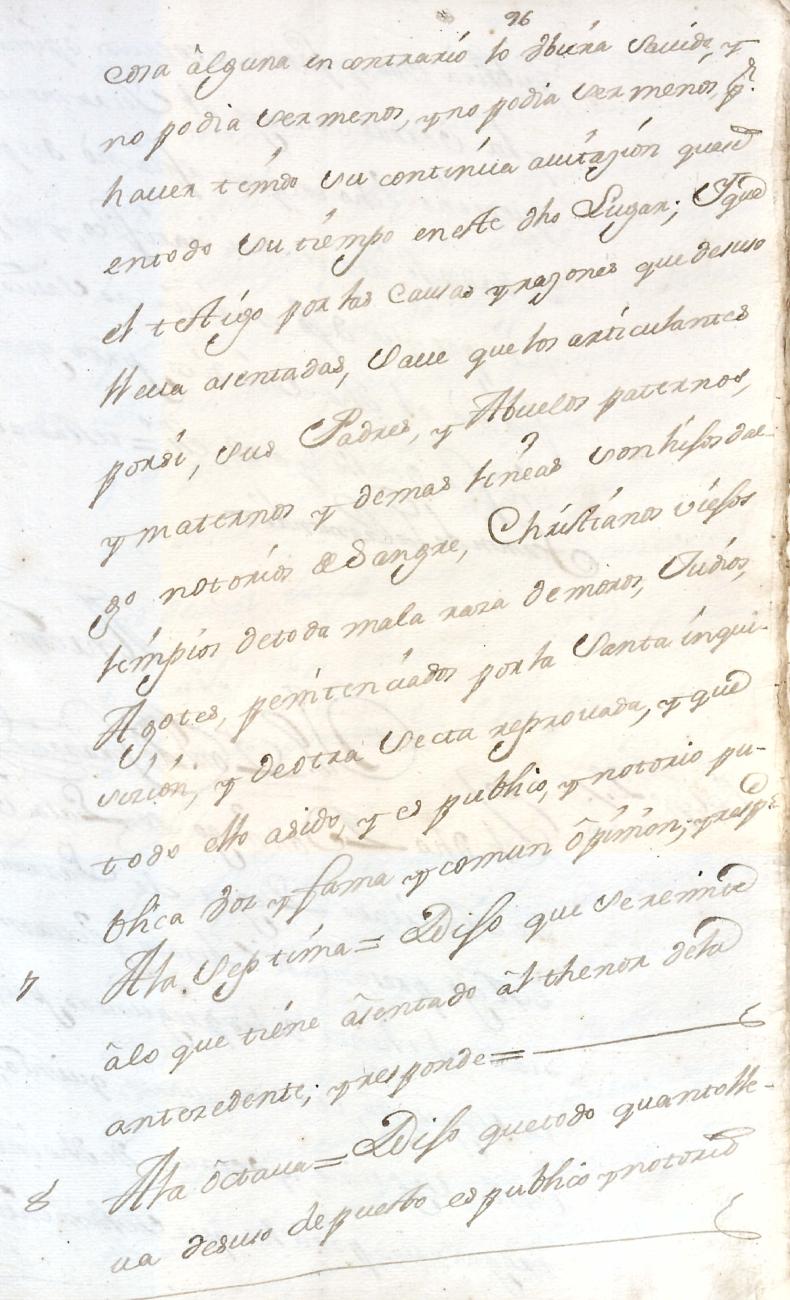 96
cosa âlguna en contrario lo dbiera savido, y
no podia ser menos, y no podia ser menos, pr.
haver tenido su continua avitazion quasi
entodo su tiempo en este dho Lugar; Y que
el testigo por las causas y razones que desuso
lleva asentadas, save que los articulantes
porsi, sus Padres, y Abuelos paternos,
y maternos y demas lineas son hijosdal-
go notorios de Sangre, Christianos viejos
limpios detoda mala raza de moros, Judios,
Agotes, penitenciados por la Santa inqui-
sicion, y deotra secta reprovada, y que
todo ello asido, y es publio, y notorio pu-
blica voz y fama y comun ôpinion; y respde
7 Ala Septima = Dijo que se remite
âlo que tiene âsentado âl thenor dela
antezedente; y responde =
8 Ala ôctava = Dijo que todo quanto lle-
va desuso depuesto es publico y notorio